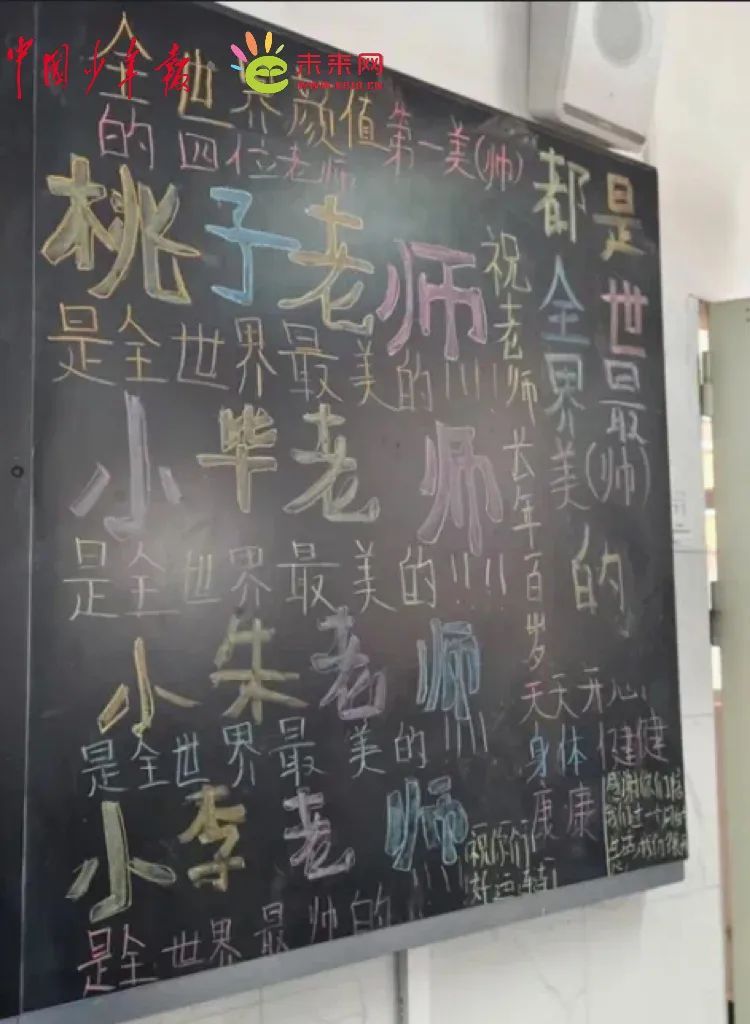 中国少年报
未来网
全世界颜值第一美(帅)
的四位老师
桃子老师
是全世界最美的!!!!
小毕老师
是全世界最美的!!!!
小朱老师
是全世界最美的!!!!
小李老师
是全世界最帅的!!!!
都是
全世
界最
美(帅)
的
祝老师长年百岁
天天开心
身体健健
康康
祝你们
好运连连
感谢你们陪